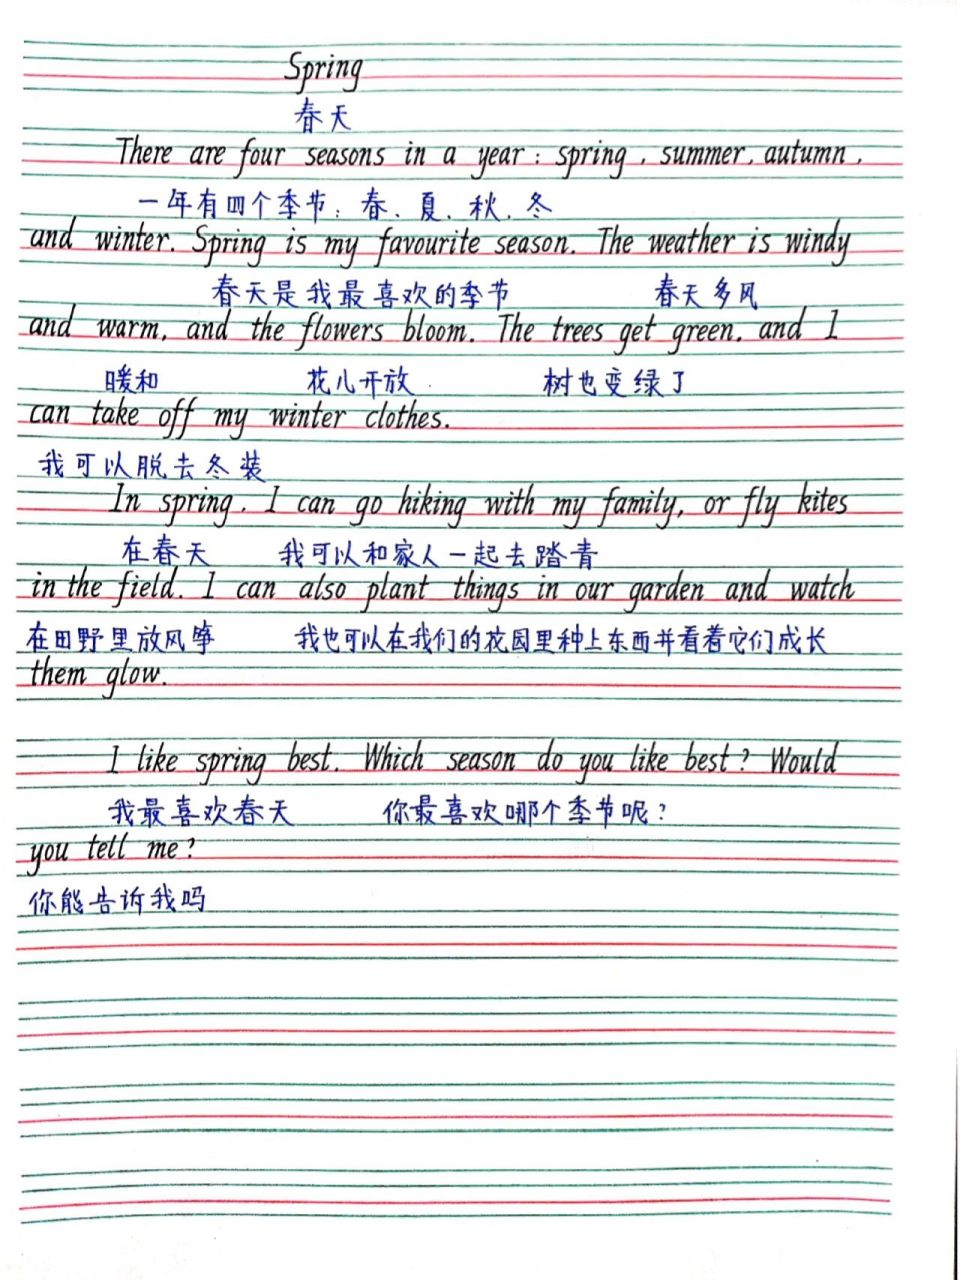 Spring
春天
There are four seasons in a year: spring, summer, autumn,
一年有四个季节:春、夏、秋、冬
and winter. Spring is my favourite season. The weather is windy
春天是我最喜欢的季节 春天多风
and warm, and the flowers bloom. The trees get green, and I
暖和 花儿开放 树也变绿了
can take off my winter clothes.
我可以脱去冬装
In spring, I can go hiking with my family, or fly kites
在春天 我可以和家人一起去踏青
in the field. I can also plant things in our garden and watch
在田野里放风筝 我也可以在我们的花园里种上东西并看着它们成长
them glow.
I like spring best. Which season do you like best? Would
我最喜欢春天 你最喜欢哪个季节呢?
you tell me?
你能告诉我吗